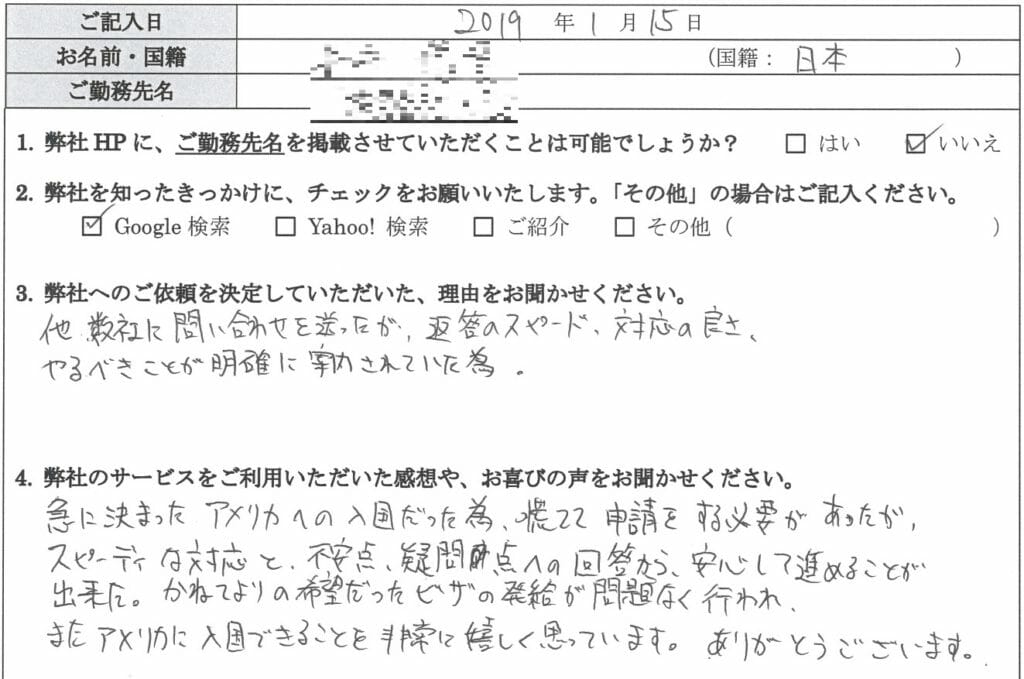 ご記入日 2019 年 1 月 15 日
お名前・国籍 (国籍： 日本 )
ご勤務先名
1. 弊社 HP に、ご勤務先名を掲載させていただくことは可能でしょうか？ □ はい ☑ いいえ
2. 弊社を知ったきっかけに、チェックをお願いいたします。「その他」の場合はご記入ください。
☑ Google 検索 □ Yahoo! 検索 □ ご紹介 □ その他 ( )
3. 弊社へのご依頼を決定していただいた、理由をお聞かせください。
他 数社に問い合わせを送ったが、返答のスピード、対応の良さ、
やるべきことが明確に されていた為。
4. 弊社のサービスをご利用いただいた感想や、お喜びの声をお聞かせください。
急に決まった アメリカへの入国だった為、慌てて 申請をする必要が あったが、
スピーディな対応と、不安点、疑問点への回答から、安心して進めることが
出来た。かねてよりの希望だったビザの発給が問題なく行われ、
またアメリカに入国できることを非常に嬉しく思っています。ありがとうございます。